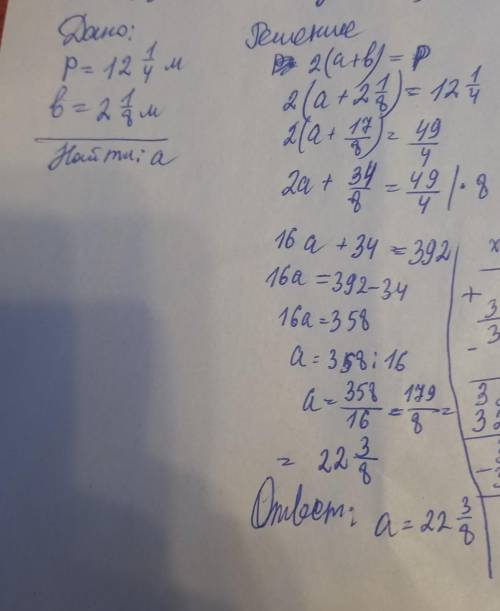 Дано:
P = 12 1/4 м
в = 2 1/8 м
Найти: a
Решение
2(a+в) = P
2(a + 2 1/8) = 12 1/4
2(a + 17/8) = 49/4
2a + 34/8 = 49/4 | · 8
16a + 34 = 392
16a = 392 - 34
16a = 358
a = 358 : 16
a = 358/16 = 179/8 =
= 22 3/8
Ответ: a = 22 3/8